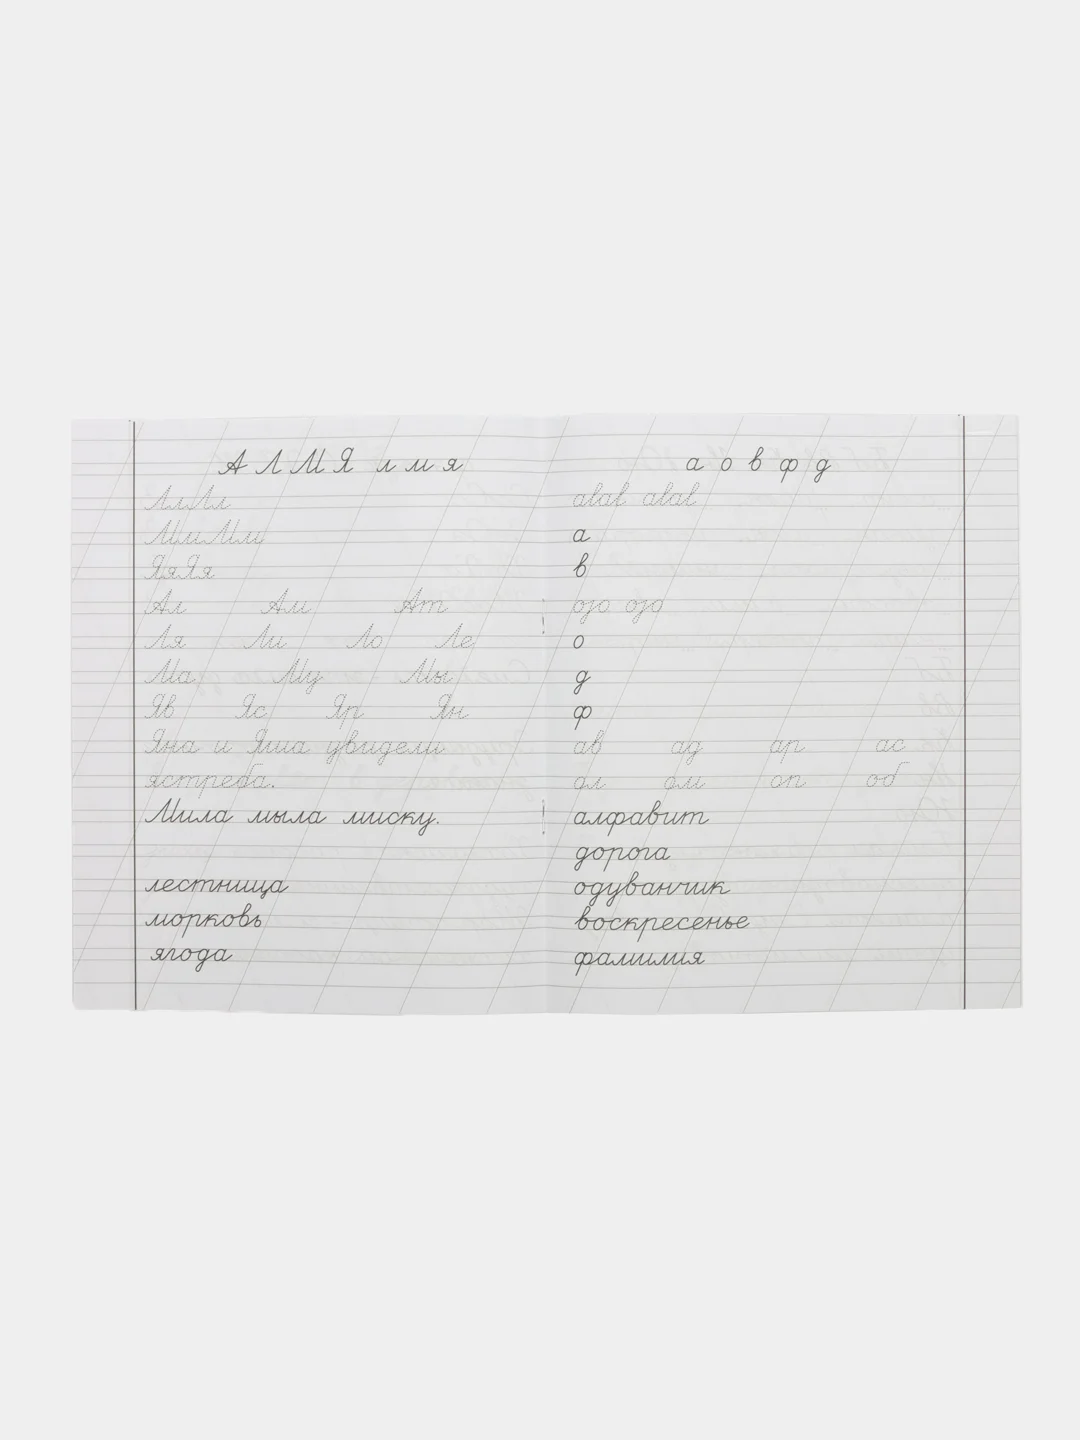 А Л М Я л м я
ЛлЛл
МмМм
ЯяЯя
Ал Ам Ат
Ля Ли Ло Ле
Ма Му Мы
Яв Яс Яр Ян
Яна и Яша увидели
ястреба.
Мила мыла миску.
лестница
морковь
ягода
а о в ф д
а
в
о
д
ф
ав ад ар ас
ол ом оп об
алфавит
дорога
одуванчик
воскресенье
фамилия